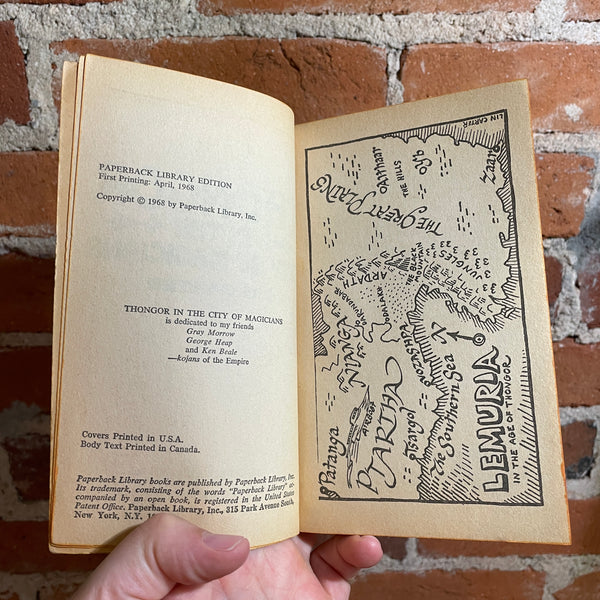 PAPERBACK LIBRARY EDITION
First Printing: April, 1968
Copyright © 1968 by Paperback Library, Inc.
THONGOR IN THE CITY OF MAGICIANS
is dedicated to my friends
Gray Morrow
George Heap
and Ken Beale
—kojans of the Empire
Covers Printed in U.S.A.
Body Text Printed in Canada.
Paperback Library books are published by Paperback Library, Inc.
Its trademark, consisting of the words "Paperback Library" ac-
companied by an open book, is registered in the United States
Patent Office. Paperback Library, Inc., 315 Park Avenue South,
New York, N.Y.
LIN CARTER
Zaar
THE HILLS
THE GREAT PLAINS
JUNGLES
THE BLACK
MOUNTAIN
ARDATH
NIANGA
Patanga
PTARTHA
Tsargol
The Southern Sea
N
LEMURIA
IN THE AGE OF THONGOR